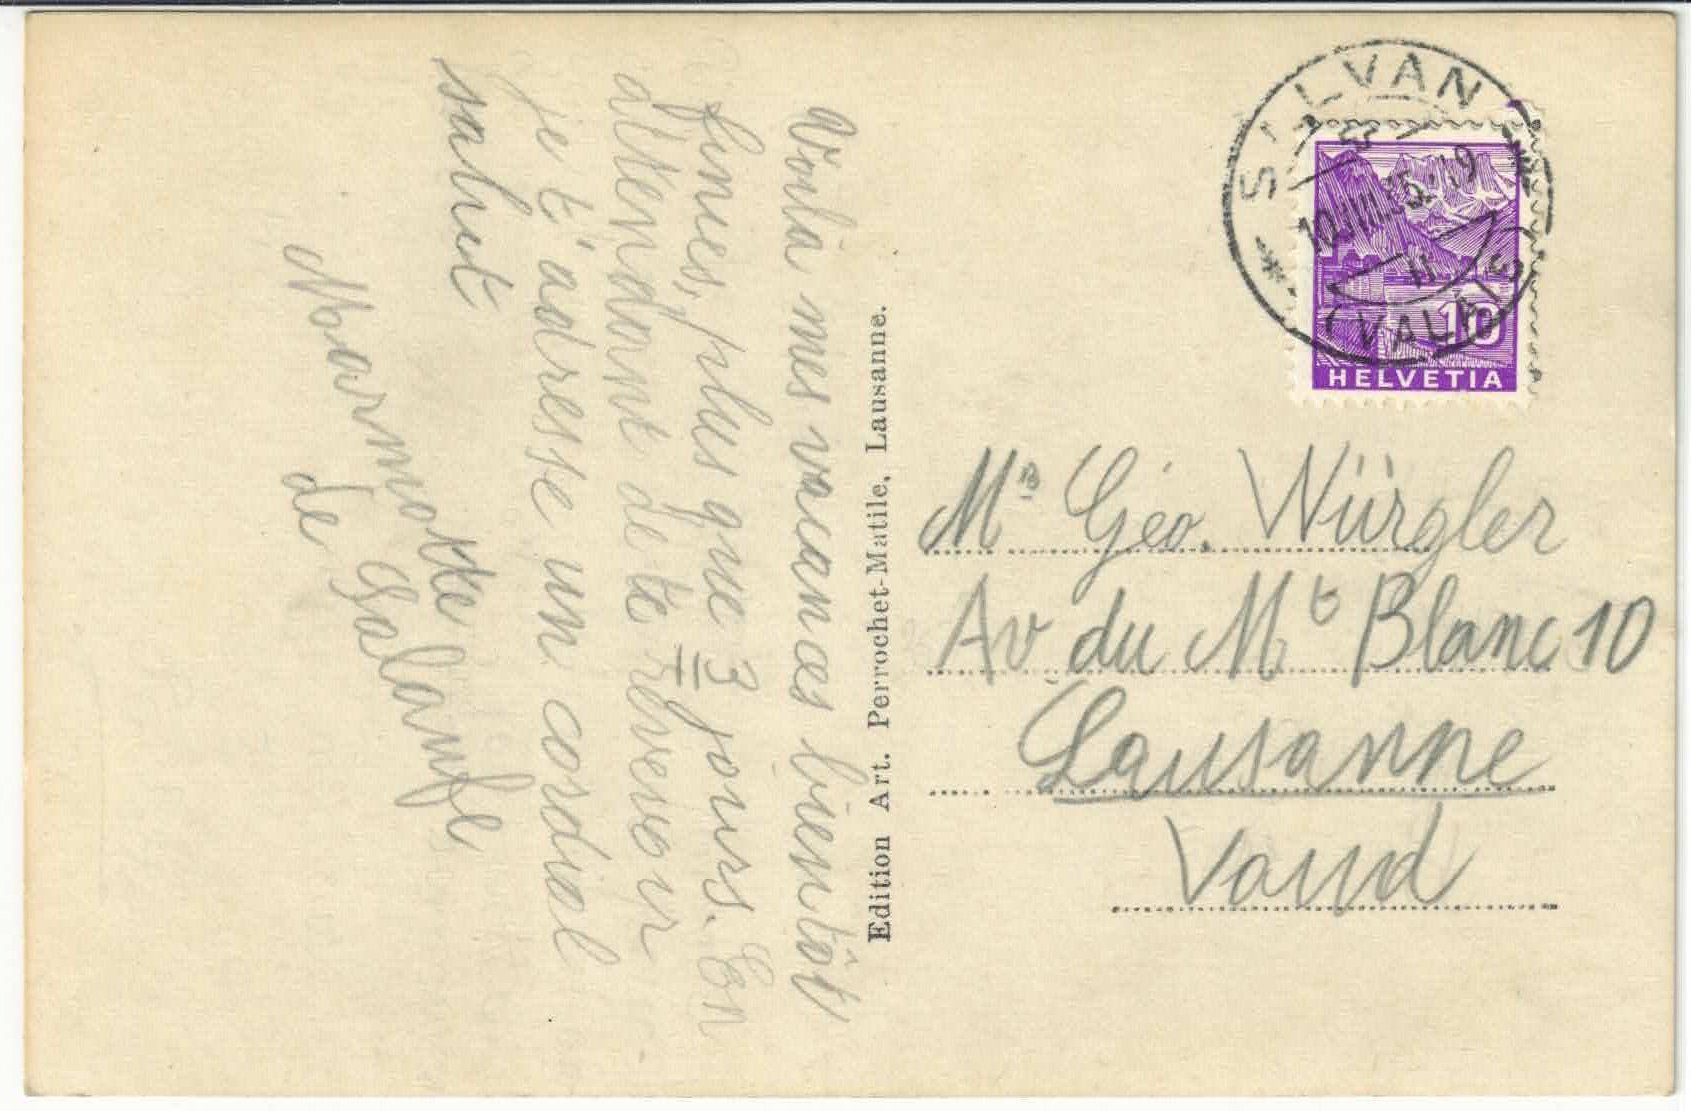 Voilà mes vacances bientôt
finies, plus que 3 jours. En
attendant de te revoir
je t'adresse un cordial
salut
Marmotte
de Salanfe
Edition Art. Perrochet-Matile, Lausanne.
SALVAN
VALAIS
10
HELVETIA
Mr Géo. Würgler
Av du Mt Blanc 10
Lausanne
Vaud